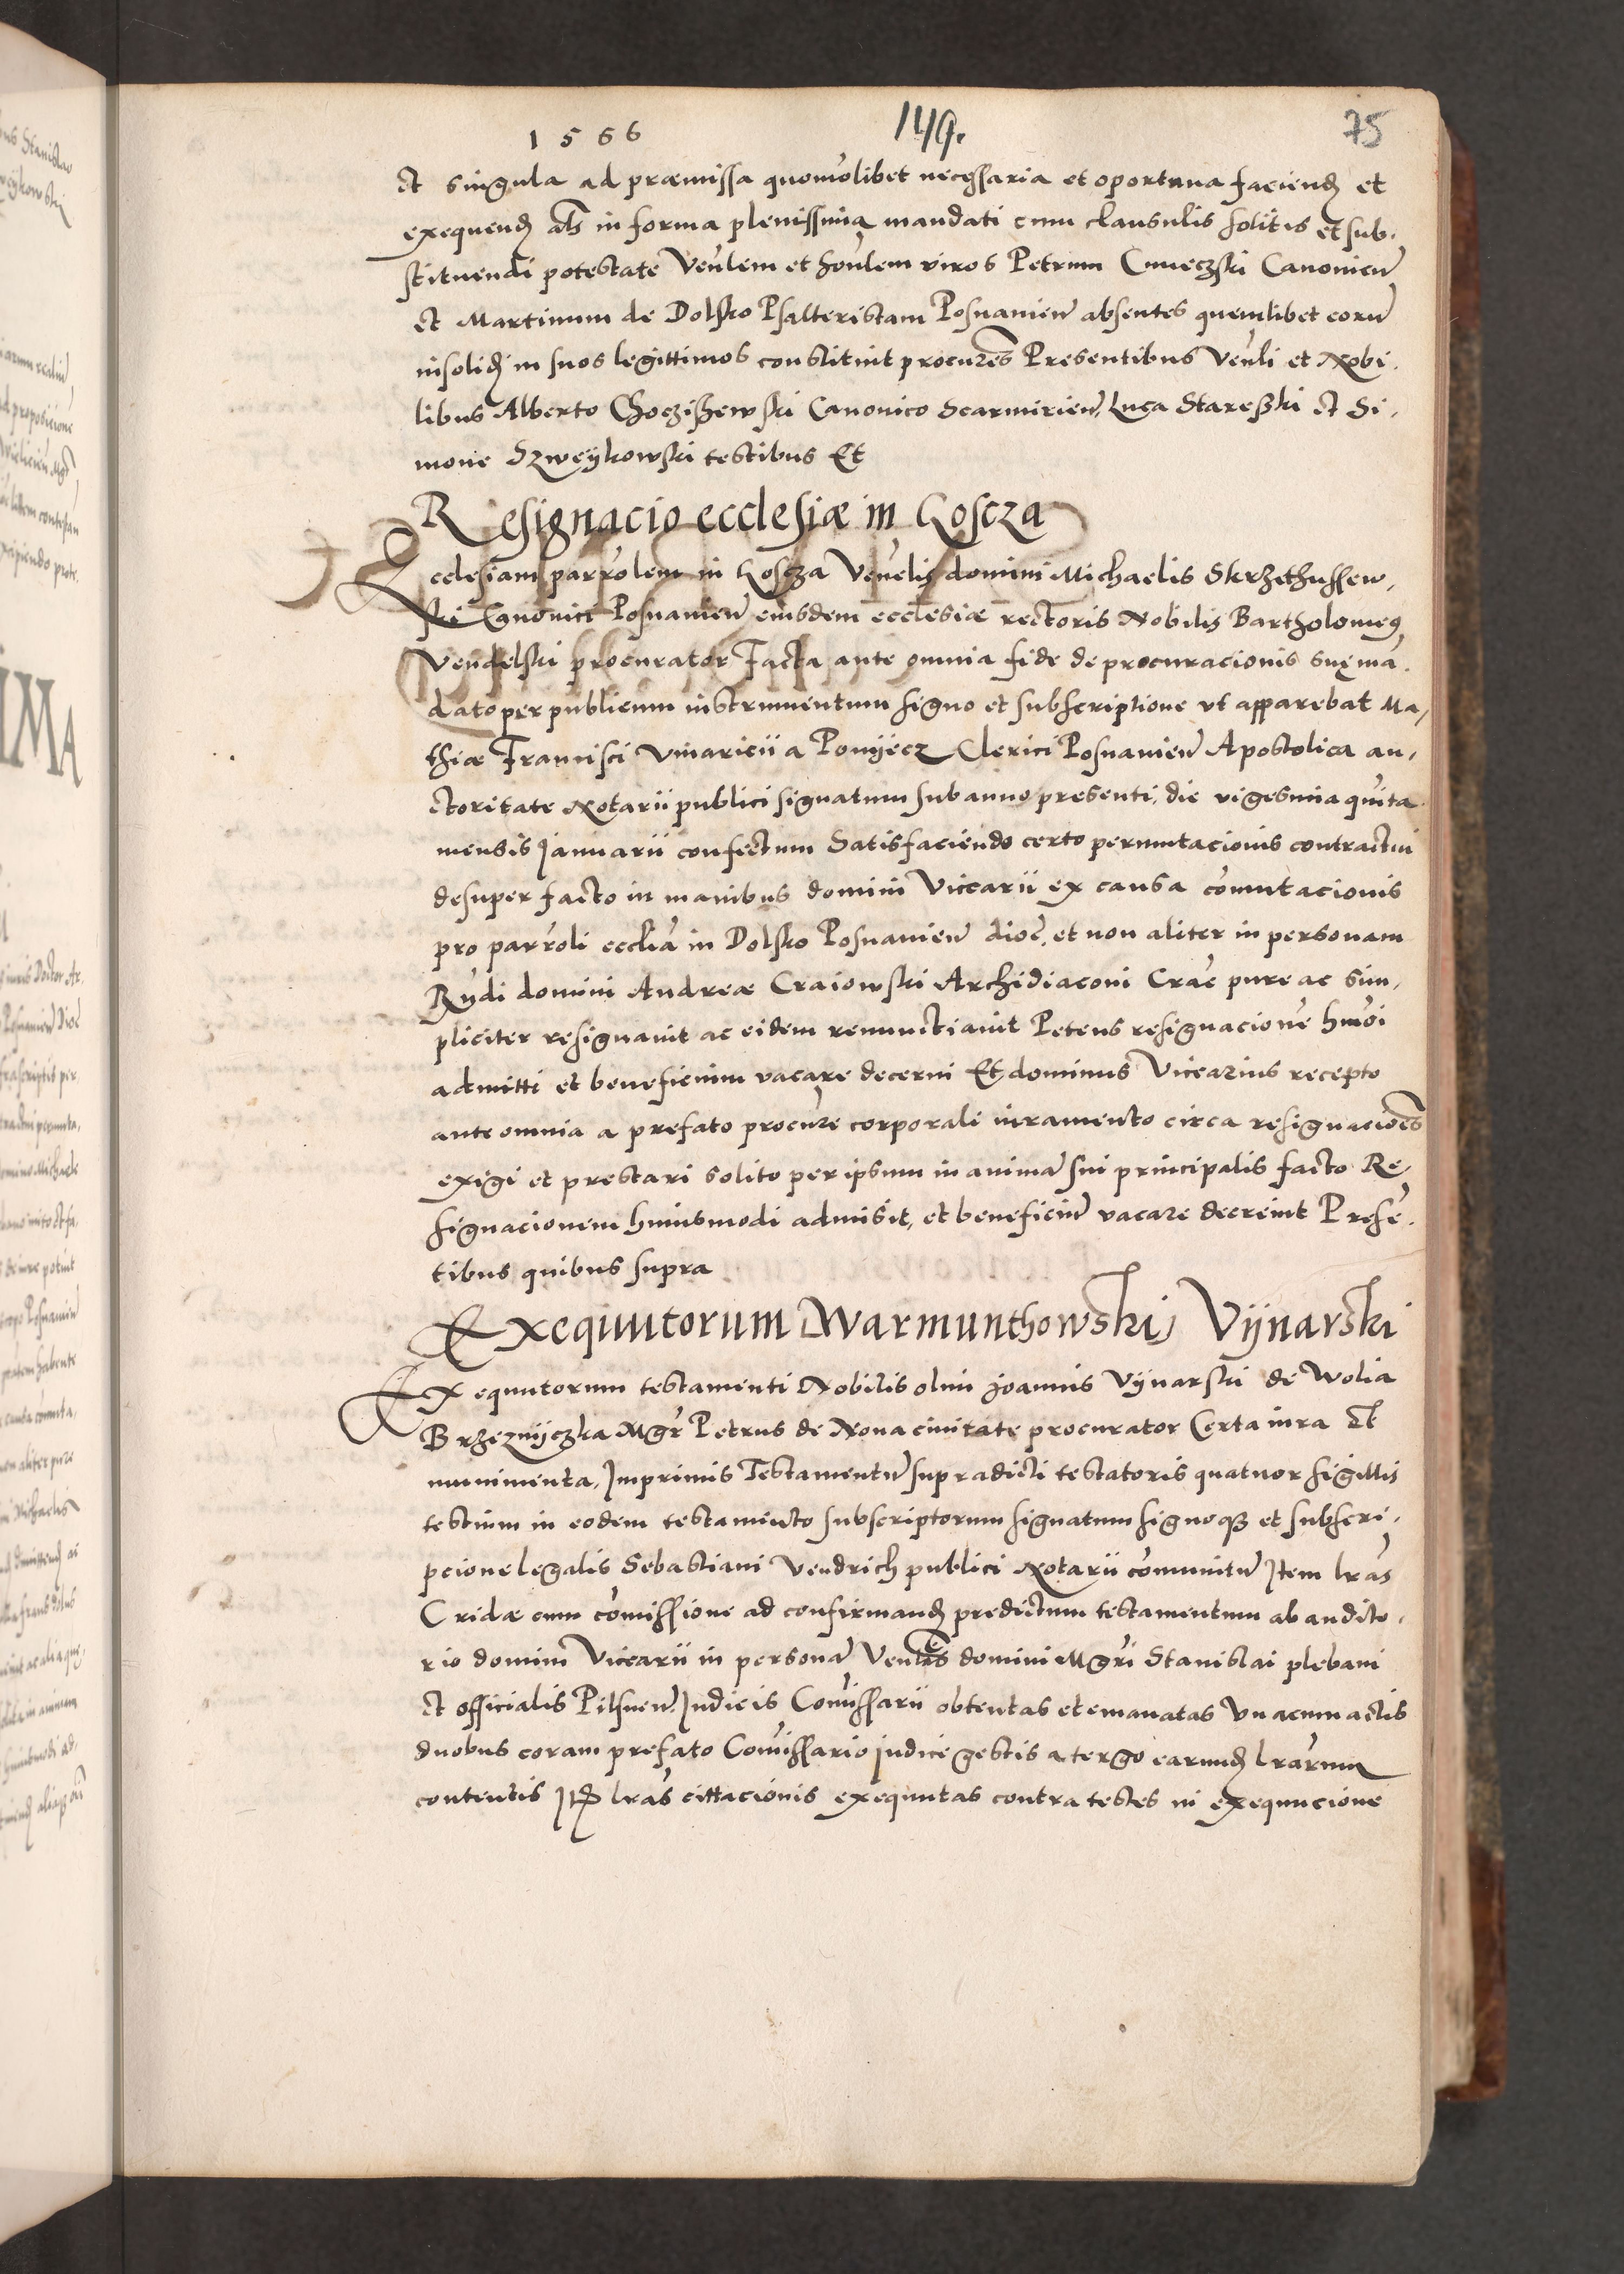 1566 149. 75
et singula ad præmissa quomōlibet necessaria et oportuna faciend et
exequend als in forma plenissima mandati cum clausulis solitis et sub-
stituendi potestate Venlem et honlem viros Petrum Canonicū
et Martinum de Dolsko Psalteristam Posnanien absentes quemlibet eorū
insolid in suos legittimos constituit procures Presentibus Venli et Nobi-
libus Alberto Choczishewski Canonico Scarmirien, Luca Staresski et Si-
mone Szweykowski testibus Et
Resignacio ecclesiæ in Koscza
Ecclesiam parrolem in Koscza Venelis domini Michaelis Skrzethussew-
ski Canonici Posnanien eiusdem ecclesiæ rectoris Nobilis Bartholomeus
Vendelski procurator Facta ante omnia fide de procuracionis suę mā-
dato per publicum instrumentum signo et subscriptione vt apparebat Ma-
thiæ Francisci Vinaricii a Clerici Posnanien Apostolica au-
ctoritate Notarii publici signatum sub anno presenti, die vigesima quīta
mensis Januarii confectum Satisfaciendo certo permutacionis contractui
desuper facto in manibus domini Vicearii ex causa cōmutacionis
pro parroli ecclia in Dolsko Posnanien dioc, et non aliter in personam
Rndi domini Andreæ Craiowski Archidiaconi Crac pure ac sim-
pliciter resignauit ac eidem renunctiauit Petens resignacionē hmōi
admitti et beneficium vacare decerni Et dominus Vicearius recepto
ante omnia a prefato procure corporali iuramento circa resignaciones
exigi et prestari solito per ipsum in animā sui principalis facto Re-
signacionem huiusmodi admisit, et beneficiū vacare decreuit Presē-
tibus quibus supra
Exequutorum Warmunthowski, Vijnarski
Exequutorum testamenti Nobilis olim Joannis Vijnarski de Wolia
Brzeznijczka Mgr Petrus de Noua ciuitate procurator Certa iura et
munimenta, Imprimis Testamentū supradicti testatoris quatuor sigillis
testium in eodem testamento subscriptorum signatum signoq3 et subscri-
pcione legalis Sebastiani Vendrich publici Notarii cōmunitū Item lras
Cridæ cum cōmissione ad confirmand predictum testamentum ab audito-
rio domini Vicearii in personā Venlis domini Mgri Stanislai plebani
et officialis Pilsnen Judicis Cōmissarii obtentas et emanatas Vna cum actis
duobus coram prefato Cōmissario judice gestis a tergo earund lrarum
contentis Itē lras cittacionis exequutas contra testes in exequucione